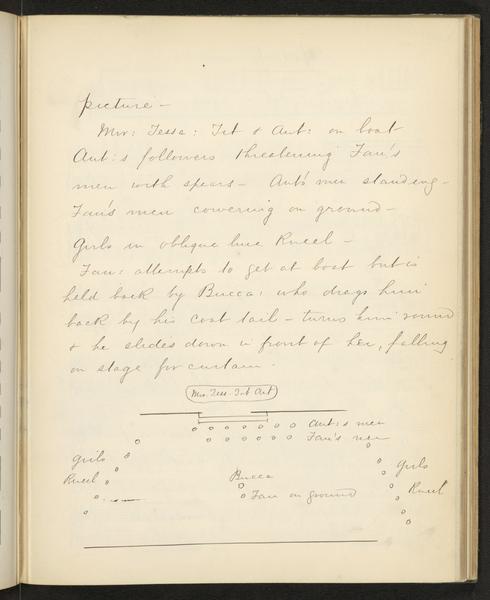 picture –
Mir: Tessa: Tit & Ant: on boat
Ant:s followers threatening Fau's
men with spears – Ant's men standing –
Fau's men cowering on ground –
Girls in oblique line Kneel –
Fau: attempts to get at boat but is
held back by Bucca: who drags him
back by his coat tail – turns him round
& he slides down in front of her, falling
on stage for curtain.
Mir. Tess. Tit Ant
Ant:s men
Fau's men
Girls
Kneel
Bucca
Fau on ground
Girls
Kneel